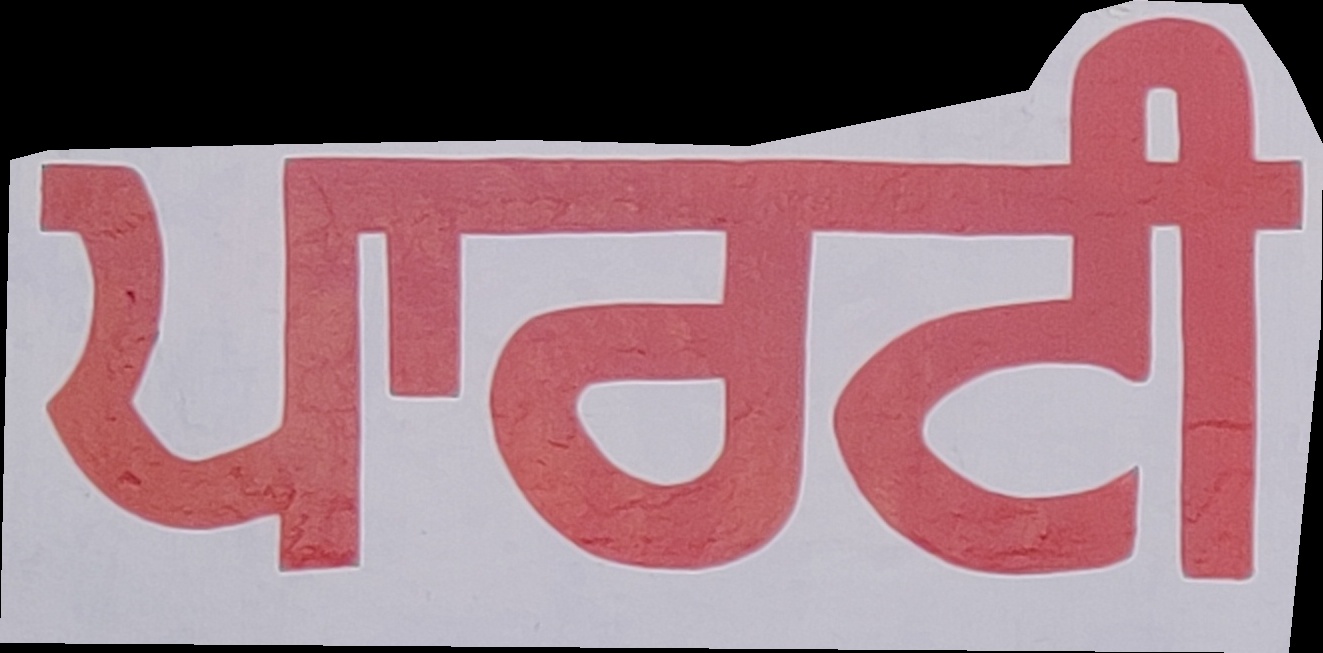 ਪਾਰਟੀ